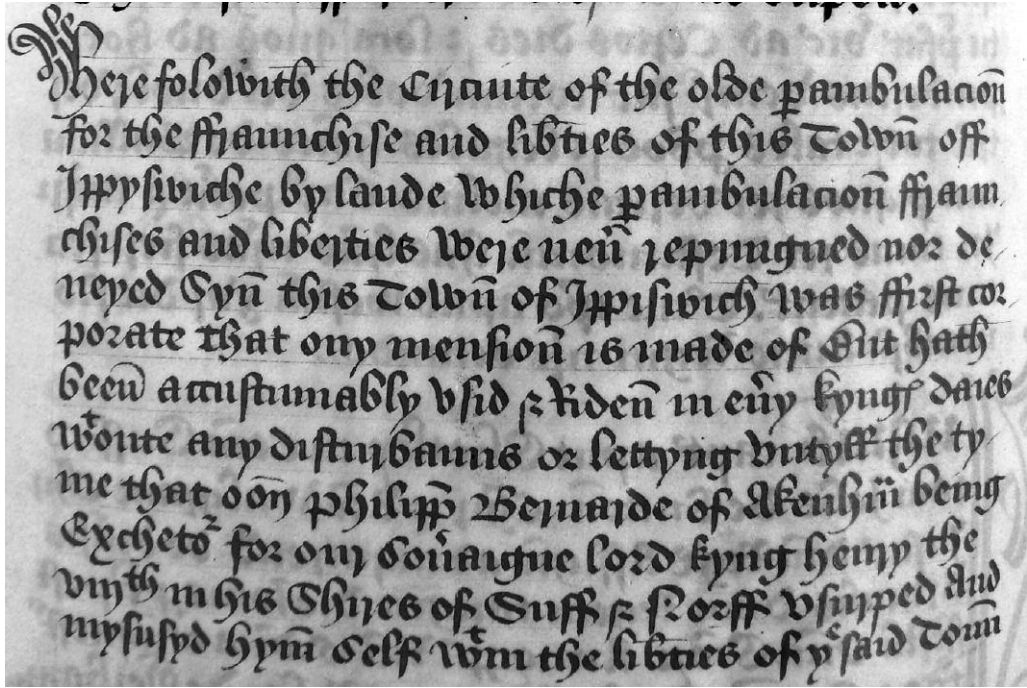 Here folowith the Circuite of the olde p̲ambulacion̄
for the ffraunchise and lib̄ties of this Town̄ off
Ippyswiche by lande whiche p̲ambulacion̄ ffraun
chises and liberties were neu̾ repungned nor de
neyed Syn̄ this Town̄ of Ippiswich was ffirst cor
porate that ony mension̄ is made of But hath
been̄ accustumably vsid & Riden̄ in eu̾y kyngꝭ daies
wᵗoute any disturbauns or lettyng vntyll the ty
me that oon philipp̄ Bernarde of Akenhm̄ being
Exchetoͬ for our Sou̾aigne lord kyng henry the
viijᵗʰ in his Shires of Suff & Norff vsurped And
mysusyd hym̄ self wᵗin the lib̄ties of yᵉ said Toun̄